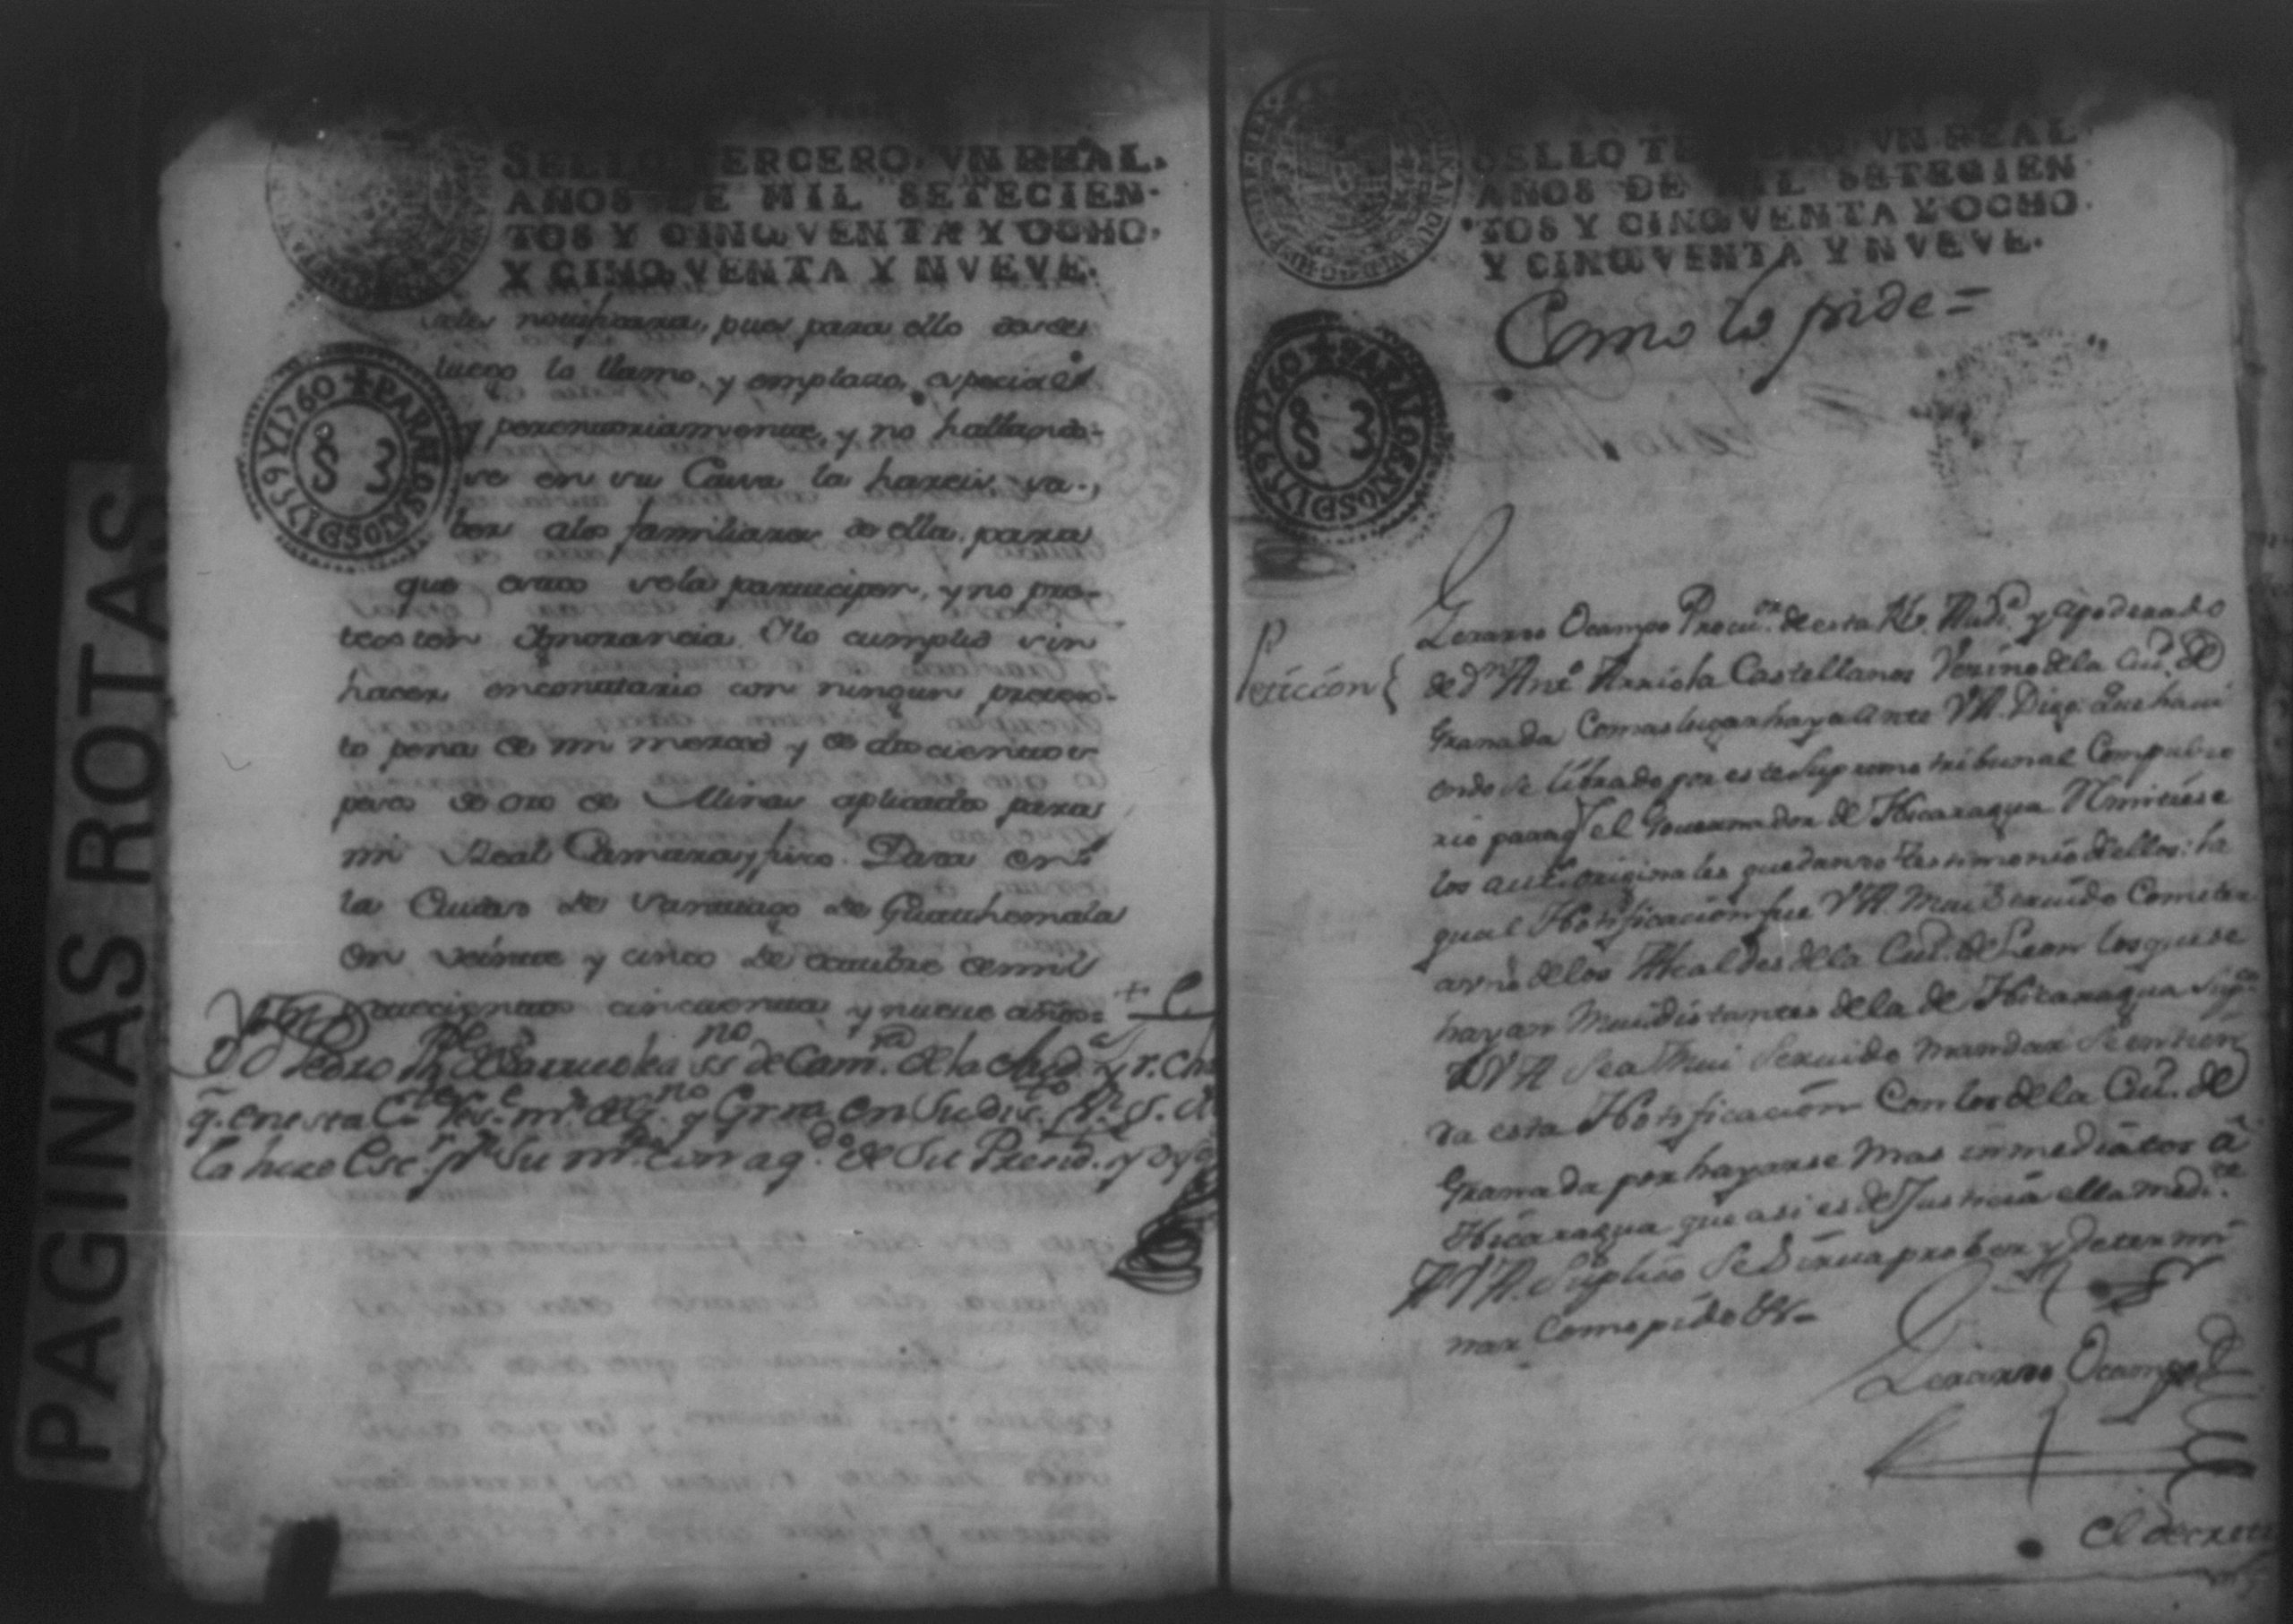 PAGINAS ROTAS
SELLO TERCERO, VN REAL.
AÑOS DE MIL SETECIEN-
TOS Y CINQVENTA Y OCHO,
Y CINQVENTA Y NVEVE.
PARA LOS AÑOS D 1759 Y 1760
S 3
notificara, pues para ello desde
luego lo llamo, y emplazo, especial
y perentoriamente, y no hallando-
se en su Cassa la hareis sa-,
ber alos familiares de ella, para
que estos sela participen, y no pre-
testen Ignorancia. Ylo cumplid sin
hacer encontrario con ningun pretes-
to pena de mi merced y de docientos
pesos de oro de Minas aplicados para
mi Real Camara, y fisco. Dada en
la Ciudad de Santiago de Guathemala
en veinte y cinco de octubre de mil
setecientos cincuenta y nueve años=
Pedro de la
la hize Esc. p. Su m. con ag.do de Su Presid. y oyd
SELLO TERCERO, VN REAL.
AÑOS DE MIL SETECIEN
TOS Y CINQVENTA Y OCHO.
Y CINQVENTA Y NVEVE.
Como lo pide=
PARA LOS AÑOS D 1759 Y 1760
S 3
Peticion {
Lerarno Ocampo Procu.or de esta Rl. Aud.a y apoderado
de Dn Anto Arriola Castellanos Vezino dela Ciud. de
Granada Como lugar haya ante V A. Digo: Que havi
endose librado por este Supremo tribunal Compulso
rio para q el Governador de Nicaragua Remitiese
los autos originales quedando testimonio dellos: la
qual Notificacion fue V A. Mui Servido Cometer
a uno delos Alcaldes dela Ciud. de Leon los que se
hayan Mui distantes dela de Nicaragua Sup.co
A V A Sea Mui Servido Mandar Se entien
da esta Notificacion Con los dela Ciud. de
Granada por hayarse Mas inmediatos â
Nicaragua que asi es de Justicia ella med.te
A V A. Suplico Se Sirva prober y determi
nar Como pido &a-
Lerarno Ocampo
el decreto